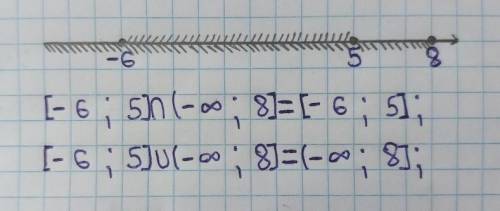 -6 5 8
[-6 ; 5]∩(-∞ ; 8]=[-6 ; 5];
[-6 ; 5]∪(-∞ ; 8]=(-∞ ; 8];